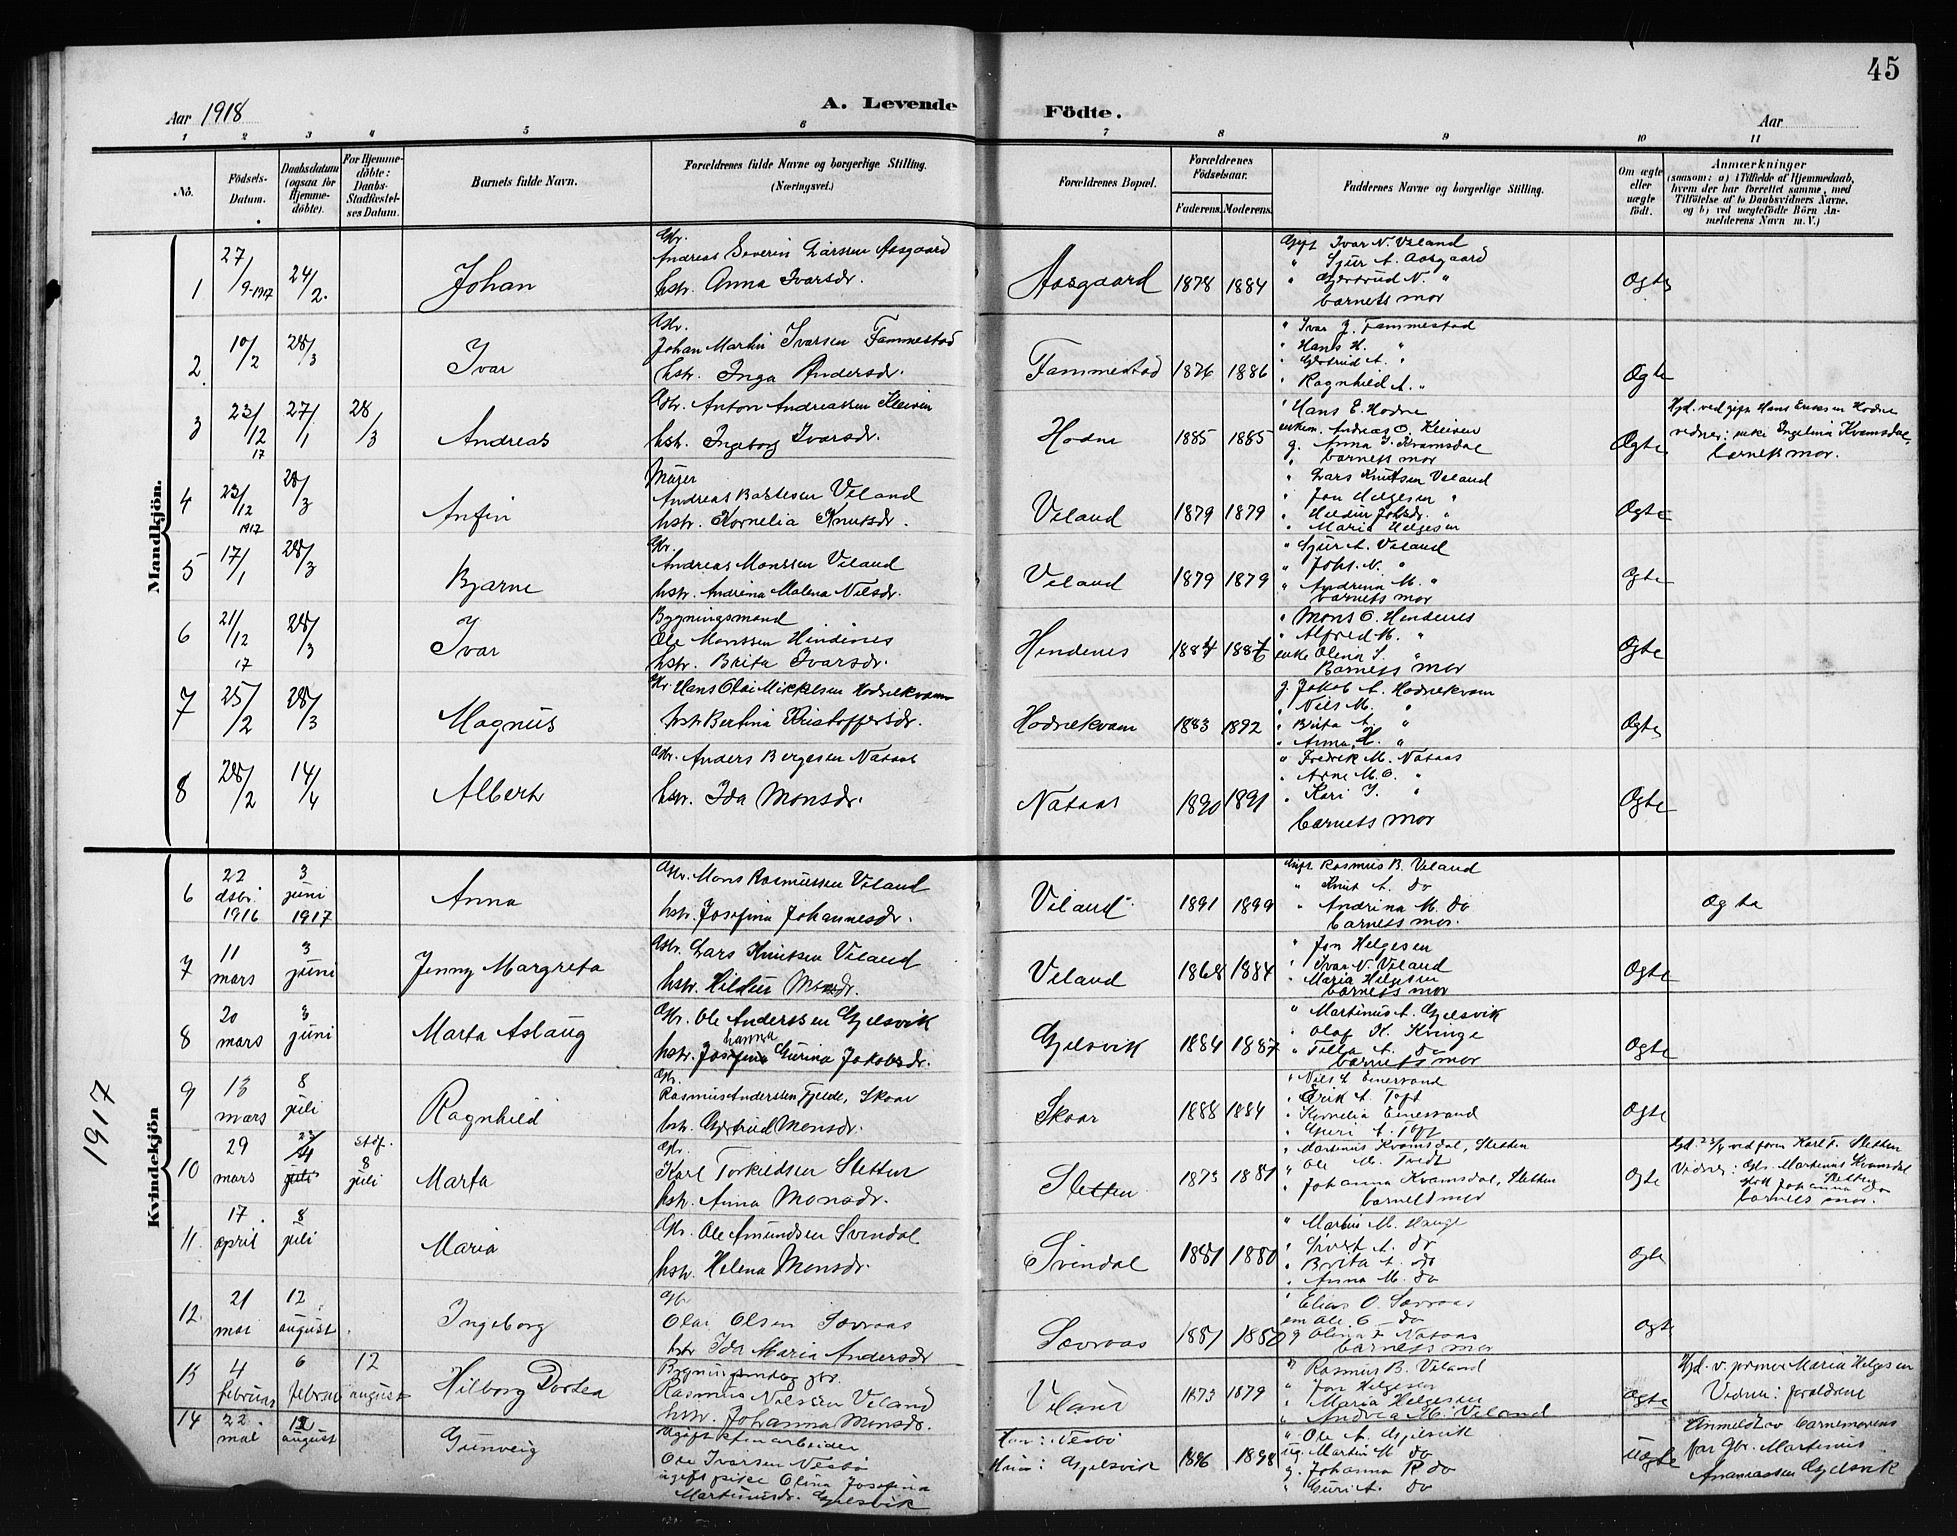 45
Aar 1918
A. Levende Födte.
Aar
1 2 3 4 5 6 7 8 9 10 11
No.
Födsels-Datum.
Daabsdatum (ogsaa for Hjemme-döbte).
For Hjemme-döbte: Daabs-Stadfæstel-ses Datum.
Barnets fulde Navn.
Forældrenes fulde Navne og borgerlige Stilling. (Næringsvei.)
Forældrenes Bopæl.
Forældrenes Födselsaar.
Faderens. Moderens.
Faddernes Navne og borgerlige Stilling.
Om ægte eller uægte födt.
Anmærkninger
(saasom: a) i Tilfælde af Hjemmedaab, hvem der har forrettet samme, med Tilföielse af to Daabsvidners Navne. og b) ved uægtefödte Börn An-melderens Navn m. V.)
Mandkjön.
1 27/9-1917 24/2. Johan
Gbr. Andreas Severin Larssen Aasgaard
hstr. Anna Ivarsdr.
Aasgaard 1878 1884
Gift Ivar N. Veland
" Sjur A. Aasgaard
" Gjertrud N. "
barnets mor
Ogte
2 10/2 28/3 Ivar
Gbr. Johan Martin Ivarsen Fammestad
hstr. Inga Andersdr.
Fammestad 1876 1886
" Ivar J. Fammestad
" Hans H. "
" Gjertrud A. "
" Ragnhild A. "
Ægte
3 23/12 17 27/1 28/3 Andreas
Gbr. Anton Andreassen Kleiven
hstr. Ingeborg Ivarsdr.
Hodne 1885 1885
" Hans E. Hodne
enkem. Andreas O. Kleiven
g. Anna I. Kvamsdal
" barnets mor
Ægte
Hjd. ved gift Hans Eriksen Hodne
vidner: enke Ingelina Kvamsdal,
barnets mor.
4 23/12 1917 28/3 Anfin
Murer
Andreas Bastesen Veland
hstr. Kornelia Knutsdr.
Veland 1879 1879
" Lars Knutsen Veland
" Jon Helgesen "
" Hildur Johsdr. "
" Maria Helgesen
Ogte
5 17/1 28/3 Bjarne
Gbr. Andreas Monssen Veland
hstr. Andrina Malena Nilsdr.
Veland 1879 1879
" Sjur A. Veland
" Johs. N. "
" Andrina M. "
barnets mor
Ogte
6 21/12 17 28/3 Ivar
Bygningsmand
Ole Monssen Hindenes
hstr. Brita Ivarsdr.
Hindenes 1884 1886
" Mons O. Hindenes
" Alfred M. "
enke Olena S. "
Barnets mor
Ogte
7 25/2 28/3 Magnus
Gbr. Hans Olai Mikkelsen Hodnekvam
hstr. Bertina Kristoffersdr.
Hodnekvam 1883 1892
g. Jakob A. Hodnekvam
" Nils M. "
" Brita A. "
" Anna "
Ogte
8 28/2 14/4 Albert
Gbr. Anders Bergesen Nataas
hstr. Ida Monsdr.
Nataas 1890 1891
" Fredrik M. Nataas
" Arne M. O. "
" Kari J. "
barnets mor
Ogte
1917
Kvindekjön
6 22 dsbr. 1916 3 juni 1917 Anna
Gbr. Mons Rasmussen Veland
hstr. Josefina Johannesdr.
Veland 1891 1899
Gift Rasmus B. Veland
" Knut A. do
" Andrina M. do
barnets mor.
Ogte
7 11 mars 3 juni Jenny Margreta
Gbr. Lars Knutsen Veland
hstr. Hildur Monsdr.
Veland 1868 1884
" Jon Helgesen
" Ivar N. Veland
" Maria Helgesen
barnets mor
Ogte
8 20 mars 3 juni Marta Aslaug
Gbr. Ole Anderssen Gjelsvik
hstr. Johanna Gurina Jakobsdr.
Gjelsvik 1884 1887
" Martinus A. Gjelsvik
" Olaf K. Kvinge
" Tilla A. do
barnets mor
Ogte
9 13 mars 8 juli Ragnhild
Gbr. Rasmus Anderssen Fjelde, Skaar
hstr. Gjertrud Monsdr.
Skaar 1888 1884
" Nils L Einesvand
" Erik A. Toft
" Kornelia Einesvand
" Guri A. Toft
Ogte
10 29 mars juli stdf. 8 juli Marta
Gbr. Karl Torkildsen Sletten
hstr. Anna Monsdr.
Sletten 1873 1881
" Martinus Kvamsdal, Sletten
" Ole M. Tvedt
" Johanna Kvamsdal, Sletten
barnets mor
Ogte
Vidner: Gbr. Martinus Kvamsdal Sletten
Johanna do
barnets mor.
11 17 april 8 juli Maria
Gbr. Ole Amundsen Svindal
hstr. Helena Monsdr.
Svindal 1881 1880
" Martin M. Hauge
" Sivert A. do
" Brita A. do
" Anna M. do
Ogte
12 21 mai 12 august Ingeborg
Gbr. Olai Olsen Sævraas
hstr. Ida Maria Andersdr.
Sævraas 1881 1880
" Elias O. Sævraas
em Ole O. do
g Olina F. Nataas
barnets mor
Ogte
13 4 februar 6 februar 12 august Hilborg Dortea
Bygningsmand og gbr.
Rasmus Nilssen Veland
hstr. Johanna Monsdr.
Veland 1873 1879
" Rasmus B. Veland
" Jon Helgesen
" Maria Helgesen
" Andrea M. Veland
Ogte
Hjd. v. Maria Helgesen
Vidner: foreldrene
14 22 mai 12 august Gunveig
Ugift stenarbeider
Ole Ivarsen Nesbö
ugift pike Olina Josefina
Martinusdr. Gjelsvik
Han: Nesbö
Hun: Gjelsvik 1896 1898
" Ole A. Gjelsvik
ug. Martin M. do
g. Johanna R. do
" Guri A. do
uægte
Anmeldt av barnemorens
far Gbr. Martinus
Ananiassen Gjelsvik